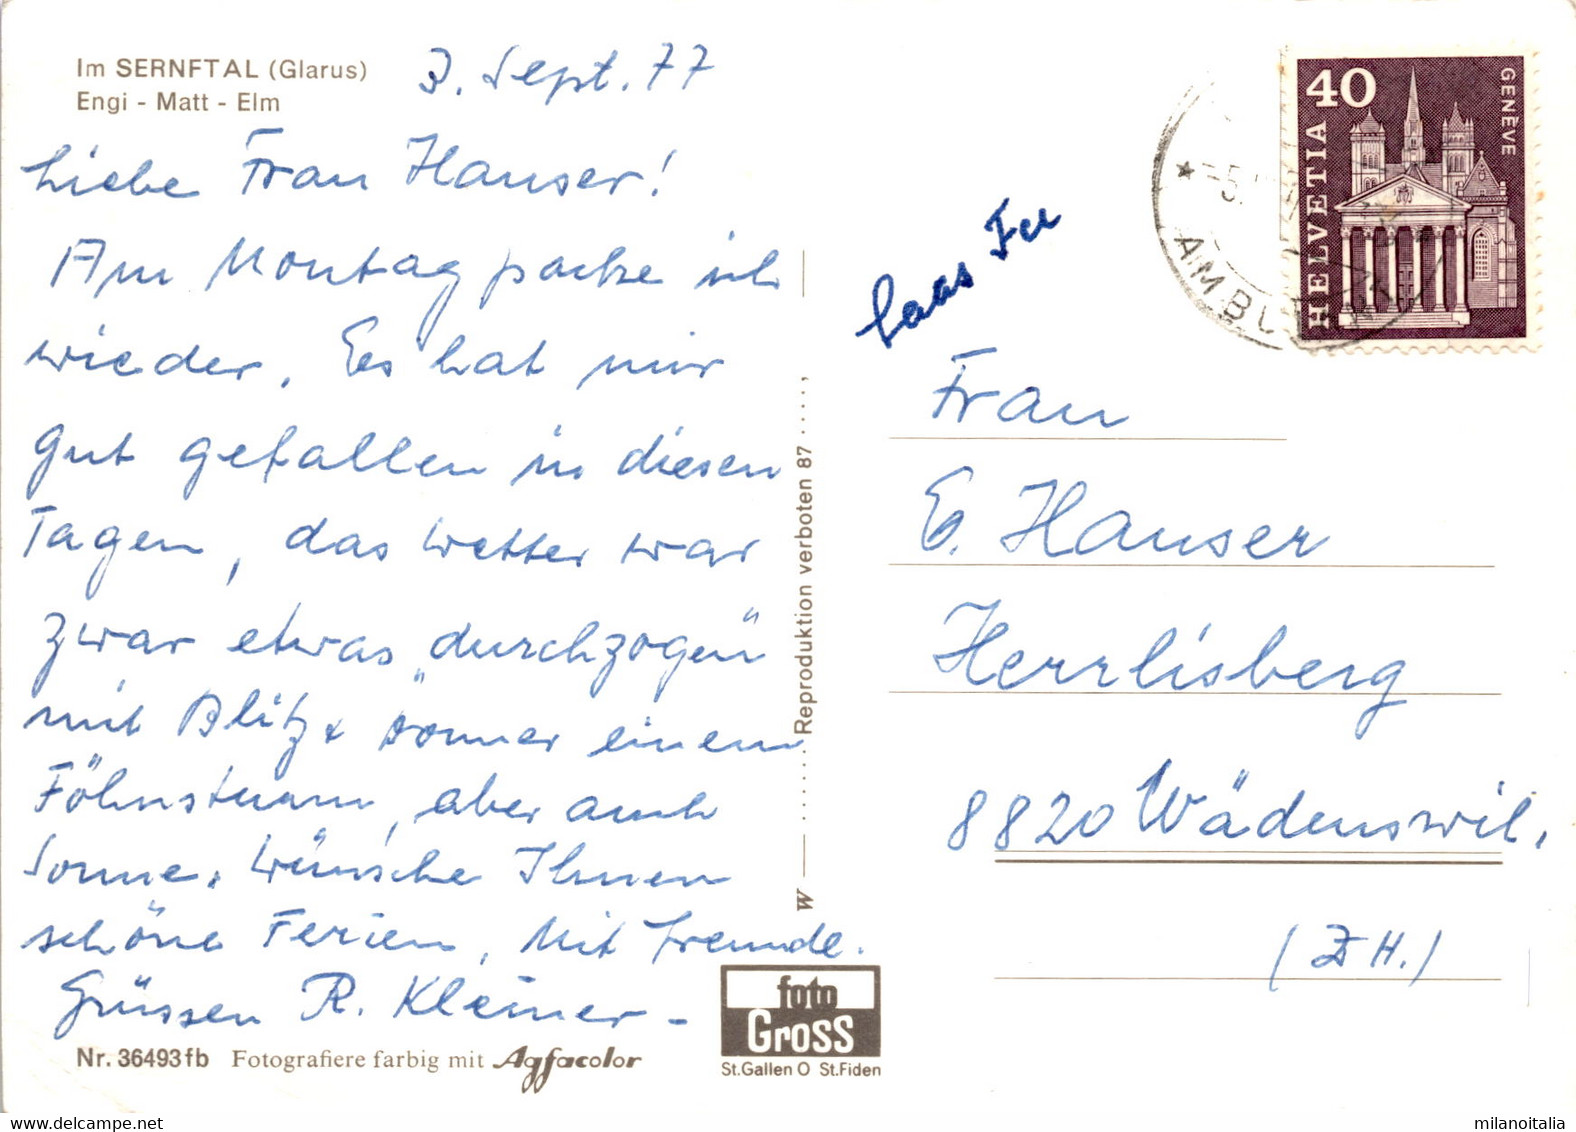 Im SERNFTAL (Glarus)
Engi - Matt - Elm
3. Sept. 77
Liebe Frau Hauser!
Am Montag packe ich
wieder. Es hat mir
gut gefallen in diesen
Tagen, das Wetter war
zwar etwas „durchzogen"
mit Blitz & Donner einem
Föhnsturm, aber auch
Sonne. Wünsche Ihnen
schöne Ferien, Mit freundl.
Grüssen R. Kleiner -
Nr. 36493fb Fotografiere farbig mit Agfacolor
W
Reproduktion verboten 87
foto
Gross
St.Gallen O St.Fiden
Saas Fee
40
GENÈVE
HELVETIA
AMBUL
Frau
E. Hauser
Herrlisberg
8820 Wädenswil.
(ZH.)
milanoitalia